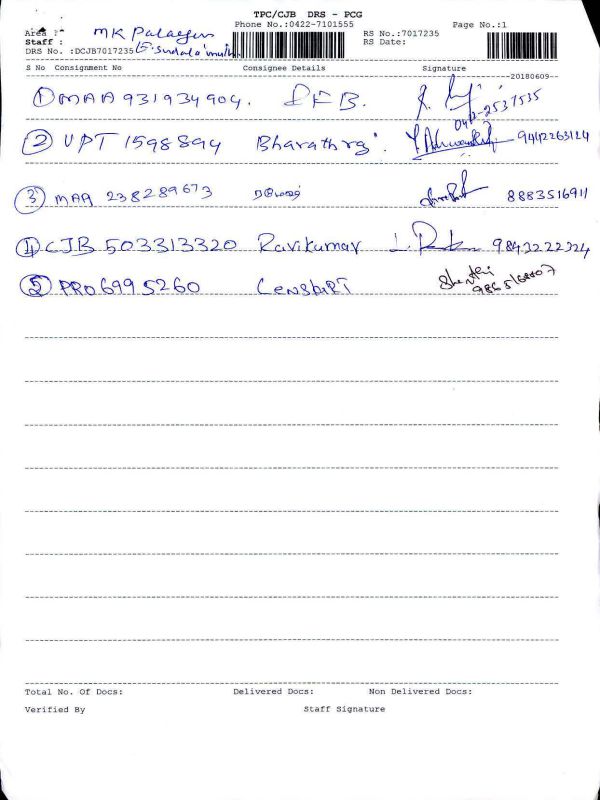 TPC/CJB DRS - PCG
Phone No.:0422-7101555 Page No.:1
Area : MK Palayam RS No.:7017235
Staff : RS Date:
DRS No. :DCJB7017235
S No Consignment No Consignee Details Signature
20180609
1 MAA 931934904.
0422-2537535
2 UPT 1598894 Bharathraj 9442263124
3 MAA 238289673 8883516911
4 CJB 503313320 Ravikumar 9843222324
5 PRO 6995260
Total No. Of Docs: Delivered Docs: Non Delivered Docs:
Verified By Staff Signature